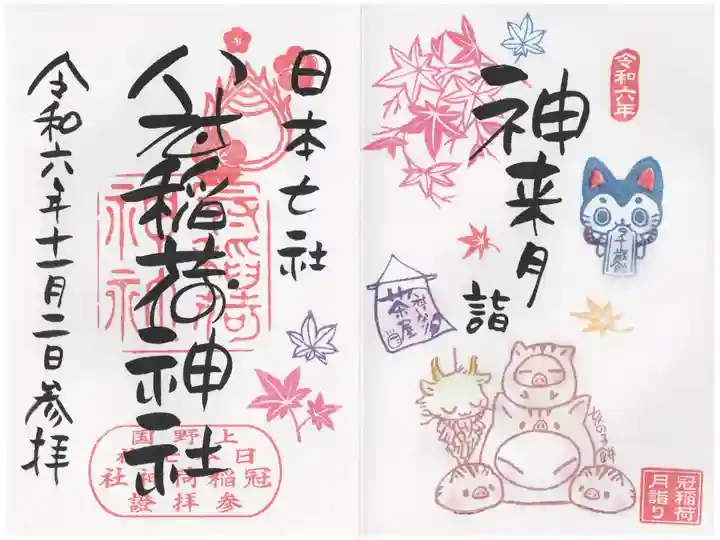 令和六年
神来月
詣
千歳
茶屋
亥の子餅
冠稲荷
月詣り
日本七社
冠稲荷神社
令和六年十一月二日参拝
上野国
冠稲荷神社
参拝證